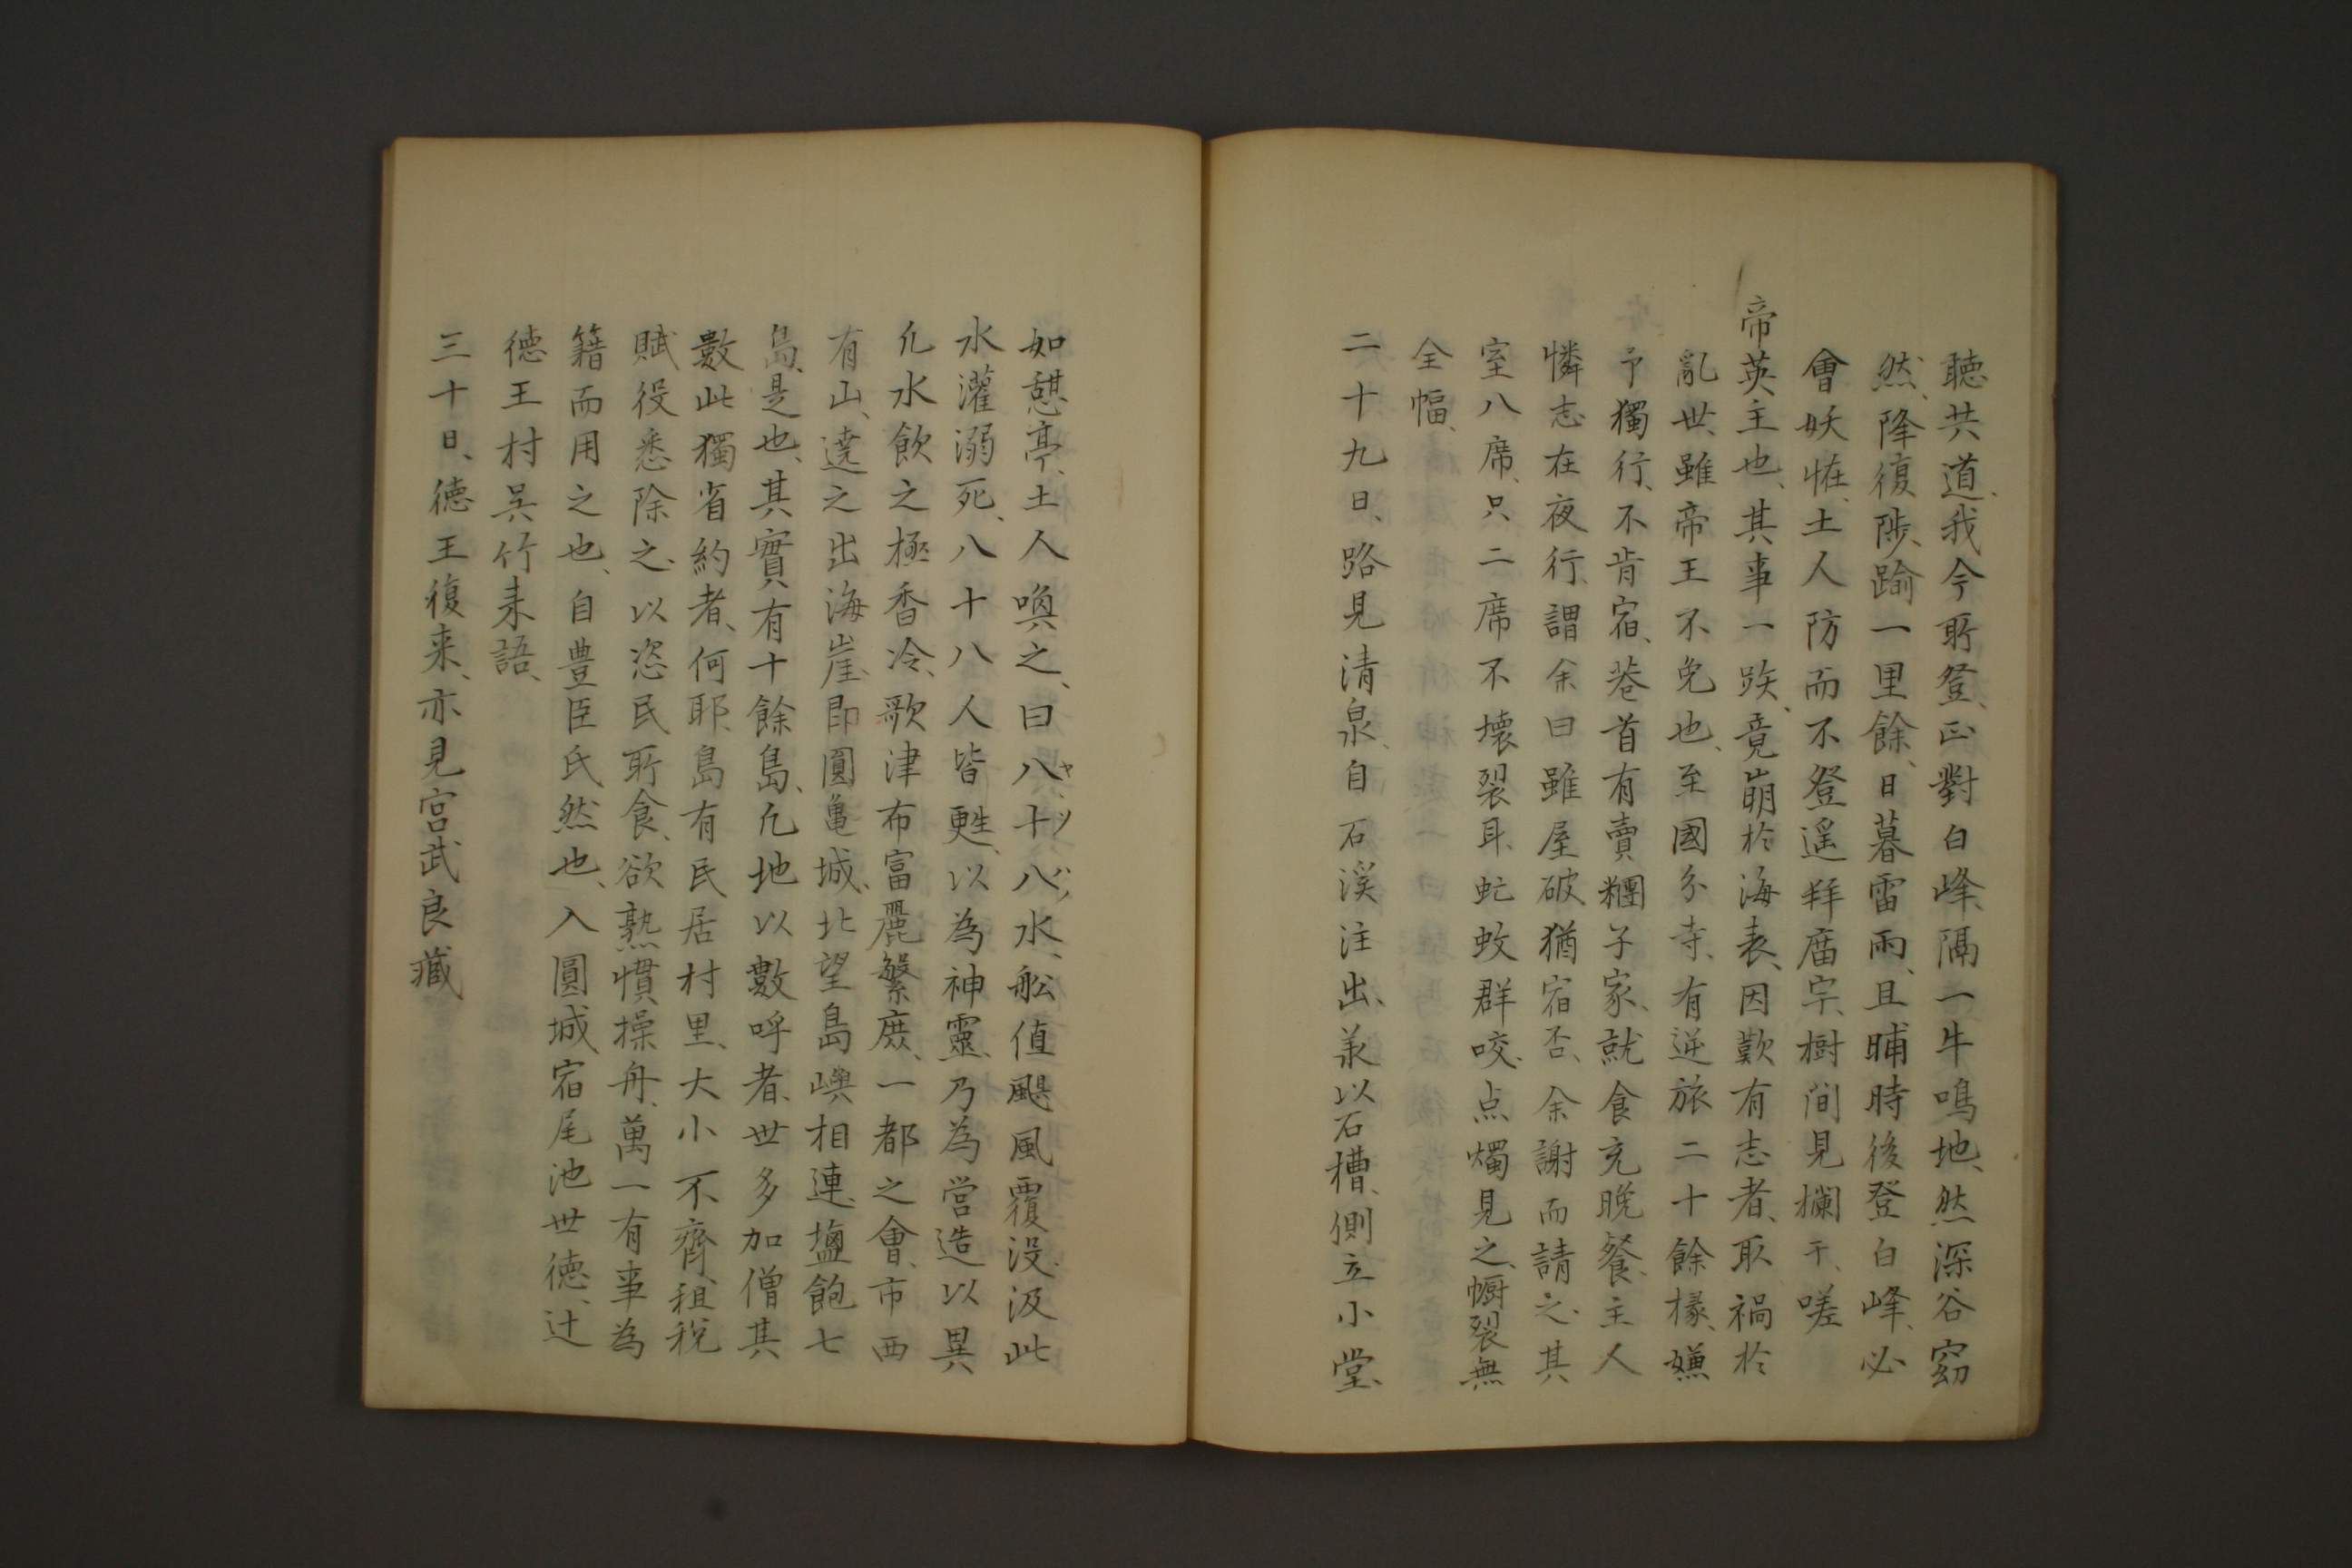 聴共道、我今所登、正對白峰、隔一牛鳴地、然深谷窈
然、降復陟、踰一里餘、日暮雷雨、且晡時後登白峰、必
會妖恠、土人防而不登遥拜庿宗、樹间見欄干、嗟
帝英主也、其事一跌、竟崩於海表、因歎有志者、取禍於
亂世、雖帝王不免也、至國分寺、有逆旅二十餘椽、嫌
予獨行、不肯宿、巷首有賣糰子家、就食充晩餐、主人
憐志在夜行、謂余曰雖屋破猶宿否、余謝而請之、其
室八席、只二席不壊裂耳、虻蚊群咬、点燭見之、幮裂無
全幅、
二十九日、路見清泉、自石溪注出、羕以石槽、側立小堂、
如憩亭、土人喚之、曰八十八水、舩值颶風覆没、汲此
ヤソバ
水灌溺死、八十八人皆甦、以為神靈、乃為営造以異
凢水飲之極香冷、歌津布富麗繁庶、一都之會、市西
有山、遶之出海崖、即圓亀城、北望島嶼相連、塩飽七
島、是也、其實有十餘島、凢地以數呼者、世多加僧其
數此獨省約者、何耶、島有民居村里、大小不齊、租税
賦役悉除之、以恣民所食、欲熟慣操舟、萬一有事為
籍而用之也、自豊臣氏然也、入圓城、宿尾池世徳、辻
徳王村呉竹来語、
三十日、徳王復来、亦見宮武良臧